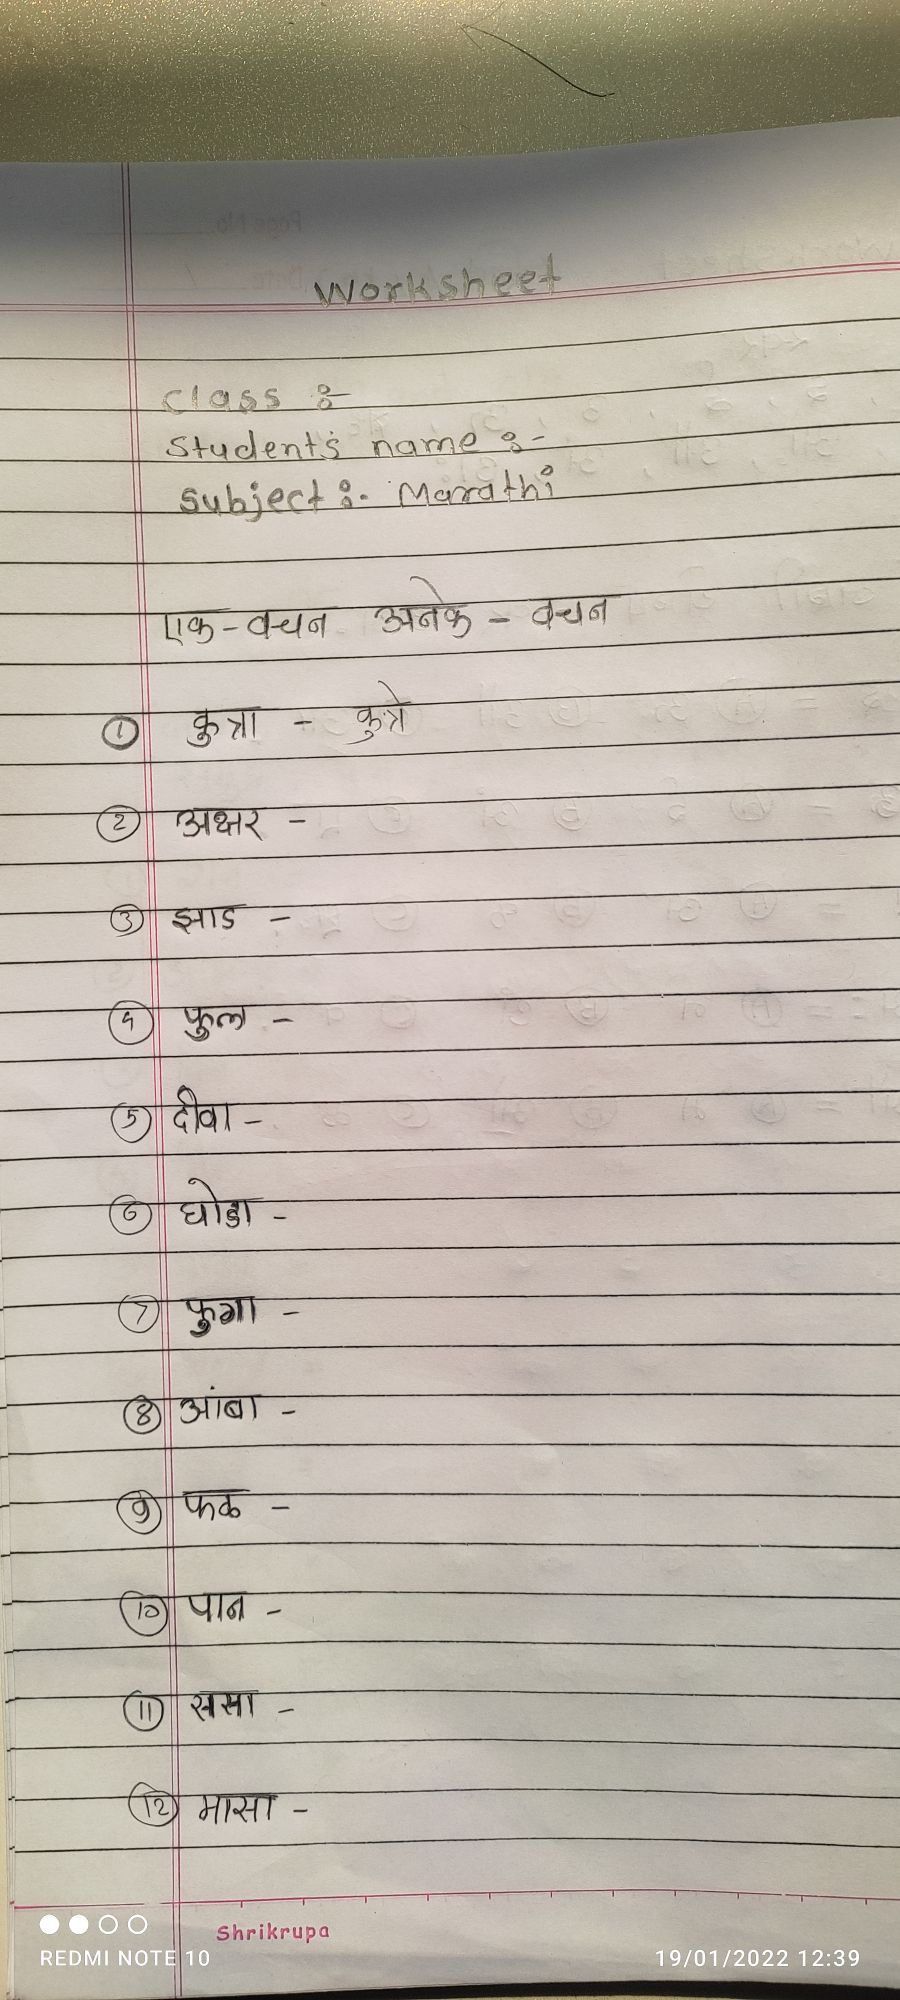 Worksheet
Class :-
Student's name :-
Subject :- Marathi
एक - वचन अनेक - वचन
① कुत्रा - कुत्रे
② अक्षर -
③ झाड -
④ फुल -
⑤ दीवा -
⑥ घोडा -
⑦ फुगा -
⑧ आंबा -
⑨ फळ -
⑩ पान -
⑪ ससा -
⑫ मासा -
Shrikrupa
REDMI NOTE 10
19/01/2022 12:39